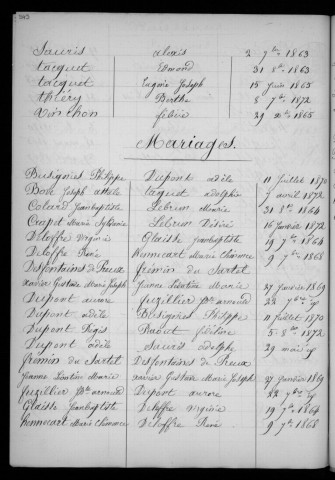 Sauris alexis 2 7bre 1863
tacquet Edmond 31 8bre 1863
tacquet Eugène Joseph 15 Juin 1865
thiéry Berthe 5 7bre 1872
félicie 29 1865
Mariages.
Busignies Philippe Dupont adèle 11 Juillet 1870
Bon Joseph taquet adolphie 7 avril 1872
Colard Jeanbaptiste Lebrun Marie 31 8bre 1864
Crapet Marie Sylvanie Lebrun Désiré 16 Janvier 1872
Deloffre Virginie Glaiste Jeanbaptiste 19 7bre 1864
Deloffre René hennecart Marie Chimence 9 7bre 1868
Desfontaines de Preux frémin du Sartel
Xavier Gustave Marie Joseph Jeanne Léontine Marie 27 Janvier 1869
Dupont aurore fuzellier Pre armand 22 7bre
Dupont adèle Busignies Philippe 11 Juillet 1870
Dupont Régis 5 8bre 1872
Dupont adèle Sauris adolphe 29 mai
frémin du Sartel Desfontaines de Preux
Jeanne Léontine Marie Xavier Gustave Marie Joseph 27 Janvier 1869
fuzellier Pre armand Dupont aurore 22 7bre
Glaiste Jeanbaptiste Deloffre Virginie 19 7bre 1864
hennecart Marie Chimence Deloffre René 9 7bre 1868